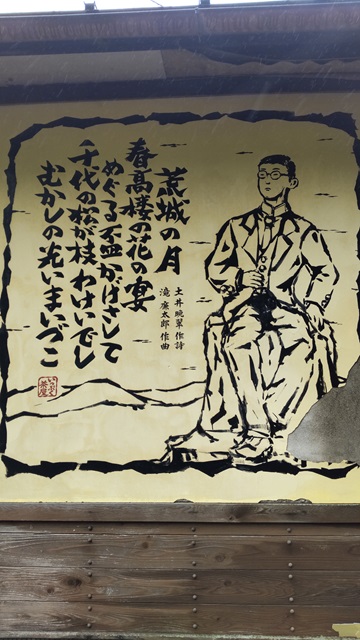 荒城の月
土井晩翠 作詩
滝 廉太郎 作曲
春高楼の花の宴
めぐる盃かげさして
千代の松が枝わけいでし
むかしの光いまいづこ